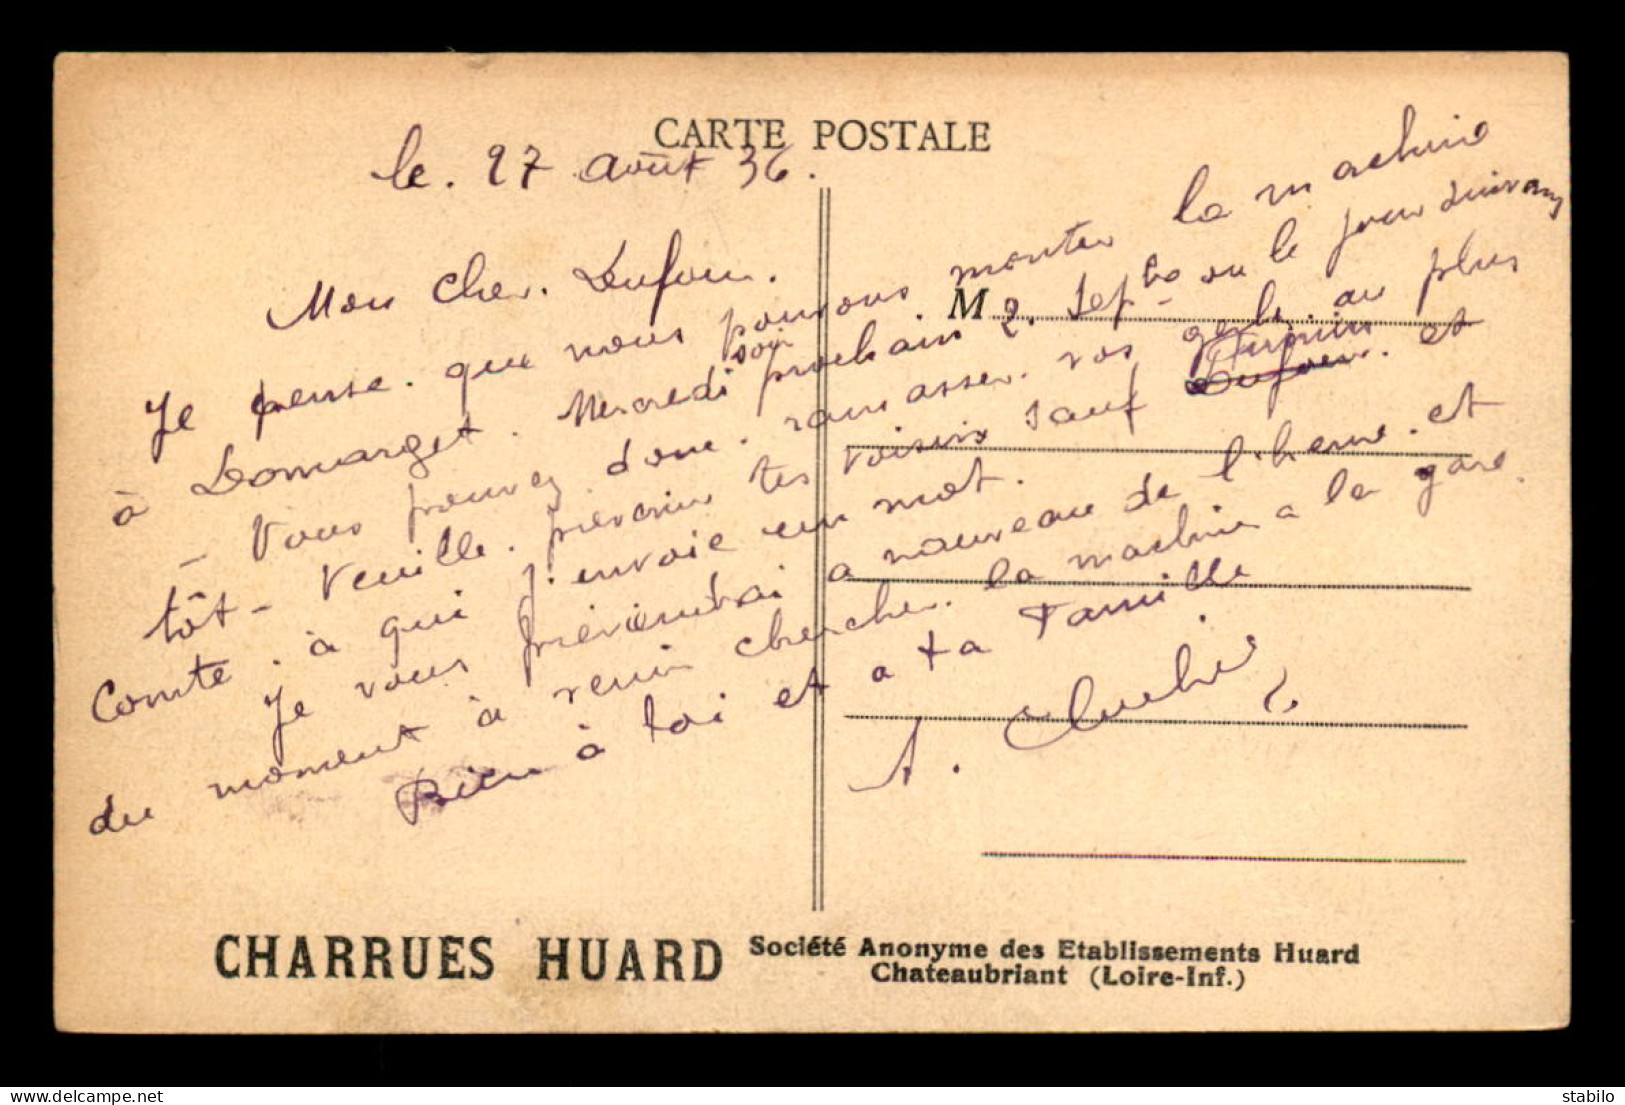 CARTE POSTALE
le. 27 août 36.
Mon cher. Dufour.
Je pense. que nous pouvons monter la machine
à Domarget. Mercredi soir prochain 2. Septbre ou le jour suivant
- Vous pouvez donc. ramasser. vos gerbes. au plus
tôt - Veuille. prévenir tes voisins sauf Dufour. Turpin et
Comte. à qui j'envoie un mot.
Je vous préviendrai a nouveau de l'heure. et
du moment à venir chercher. la machine a la gare.
Bien à toi et a ta famille
A.
M
CHARRUES HUARD
Société Anonyme des Etablissements Huard
Chateaubriant (Loire-Inf.)
stabilo